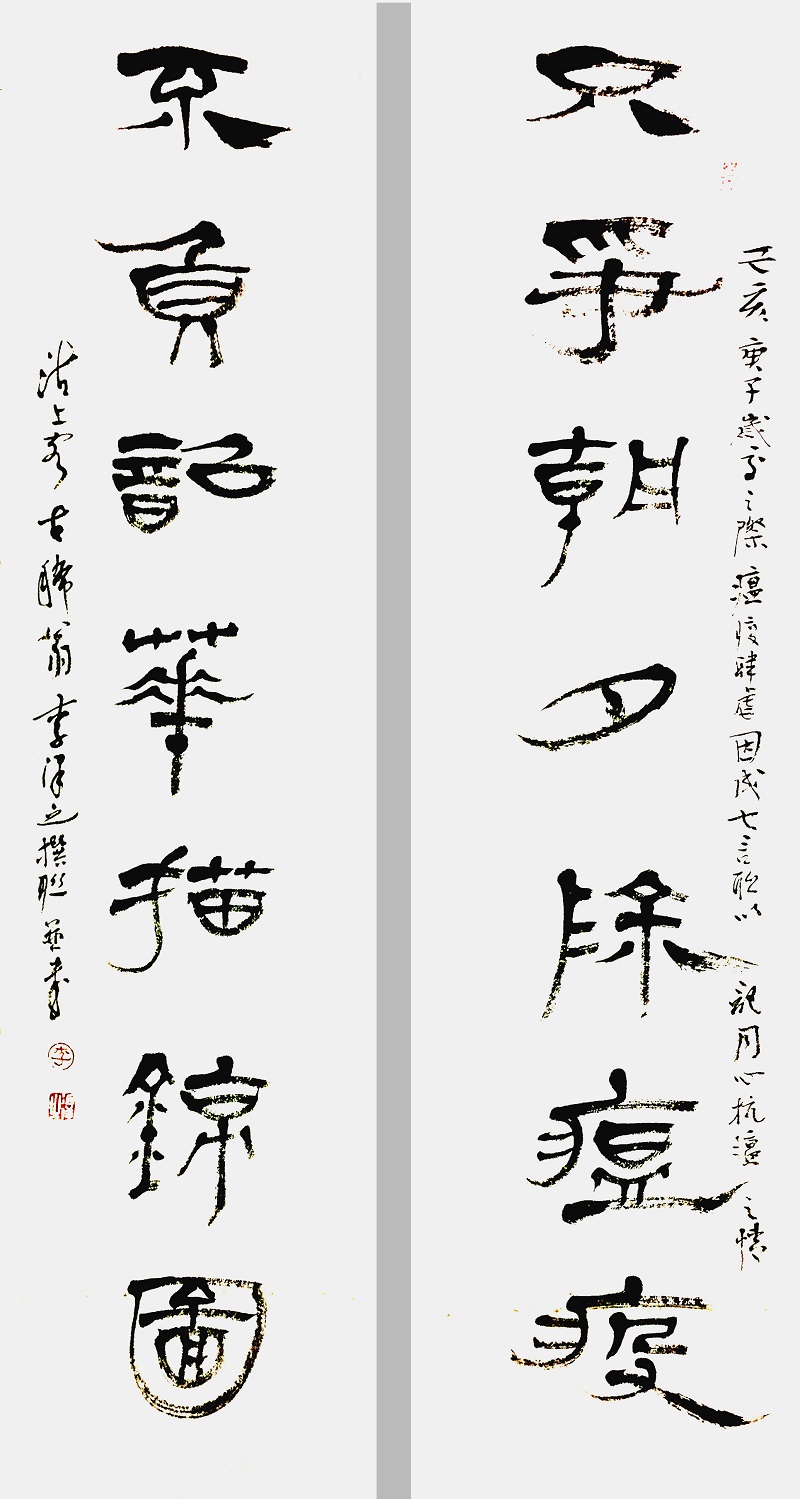 只爭朝夕除瘟疫
己亥庚子歲交之際瘟疫肆虐因成七言聯以記同心抗瘟之情
不負韶華描錦圖
沽上客古稀翁李澤之撰聯並書
李